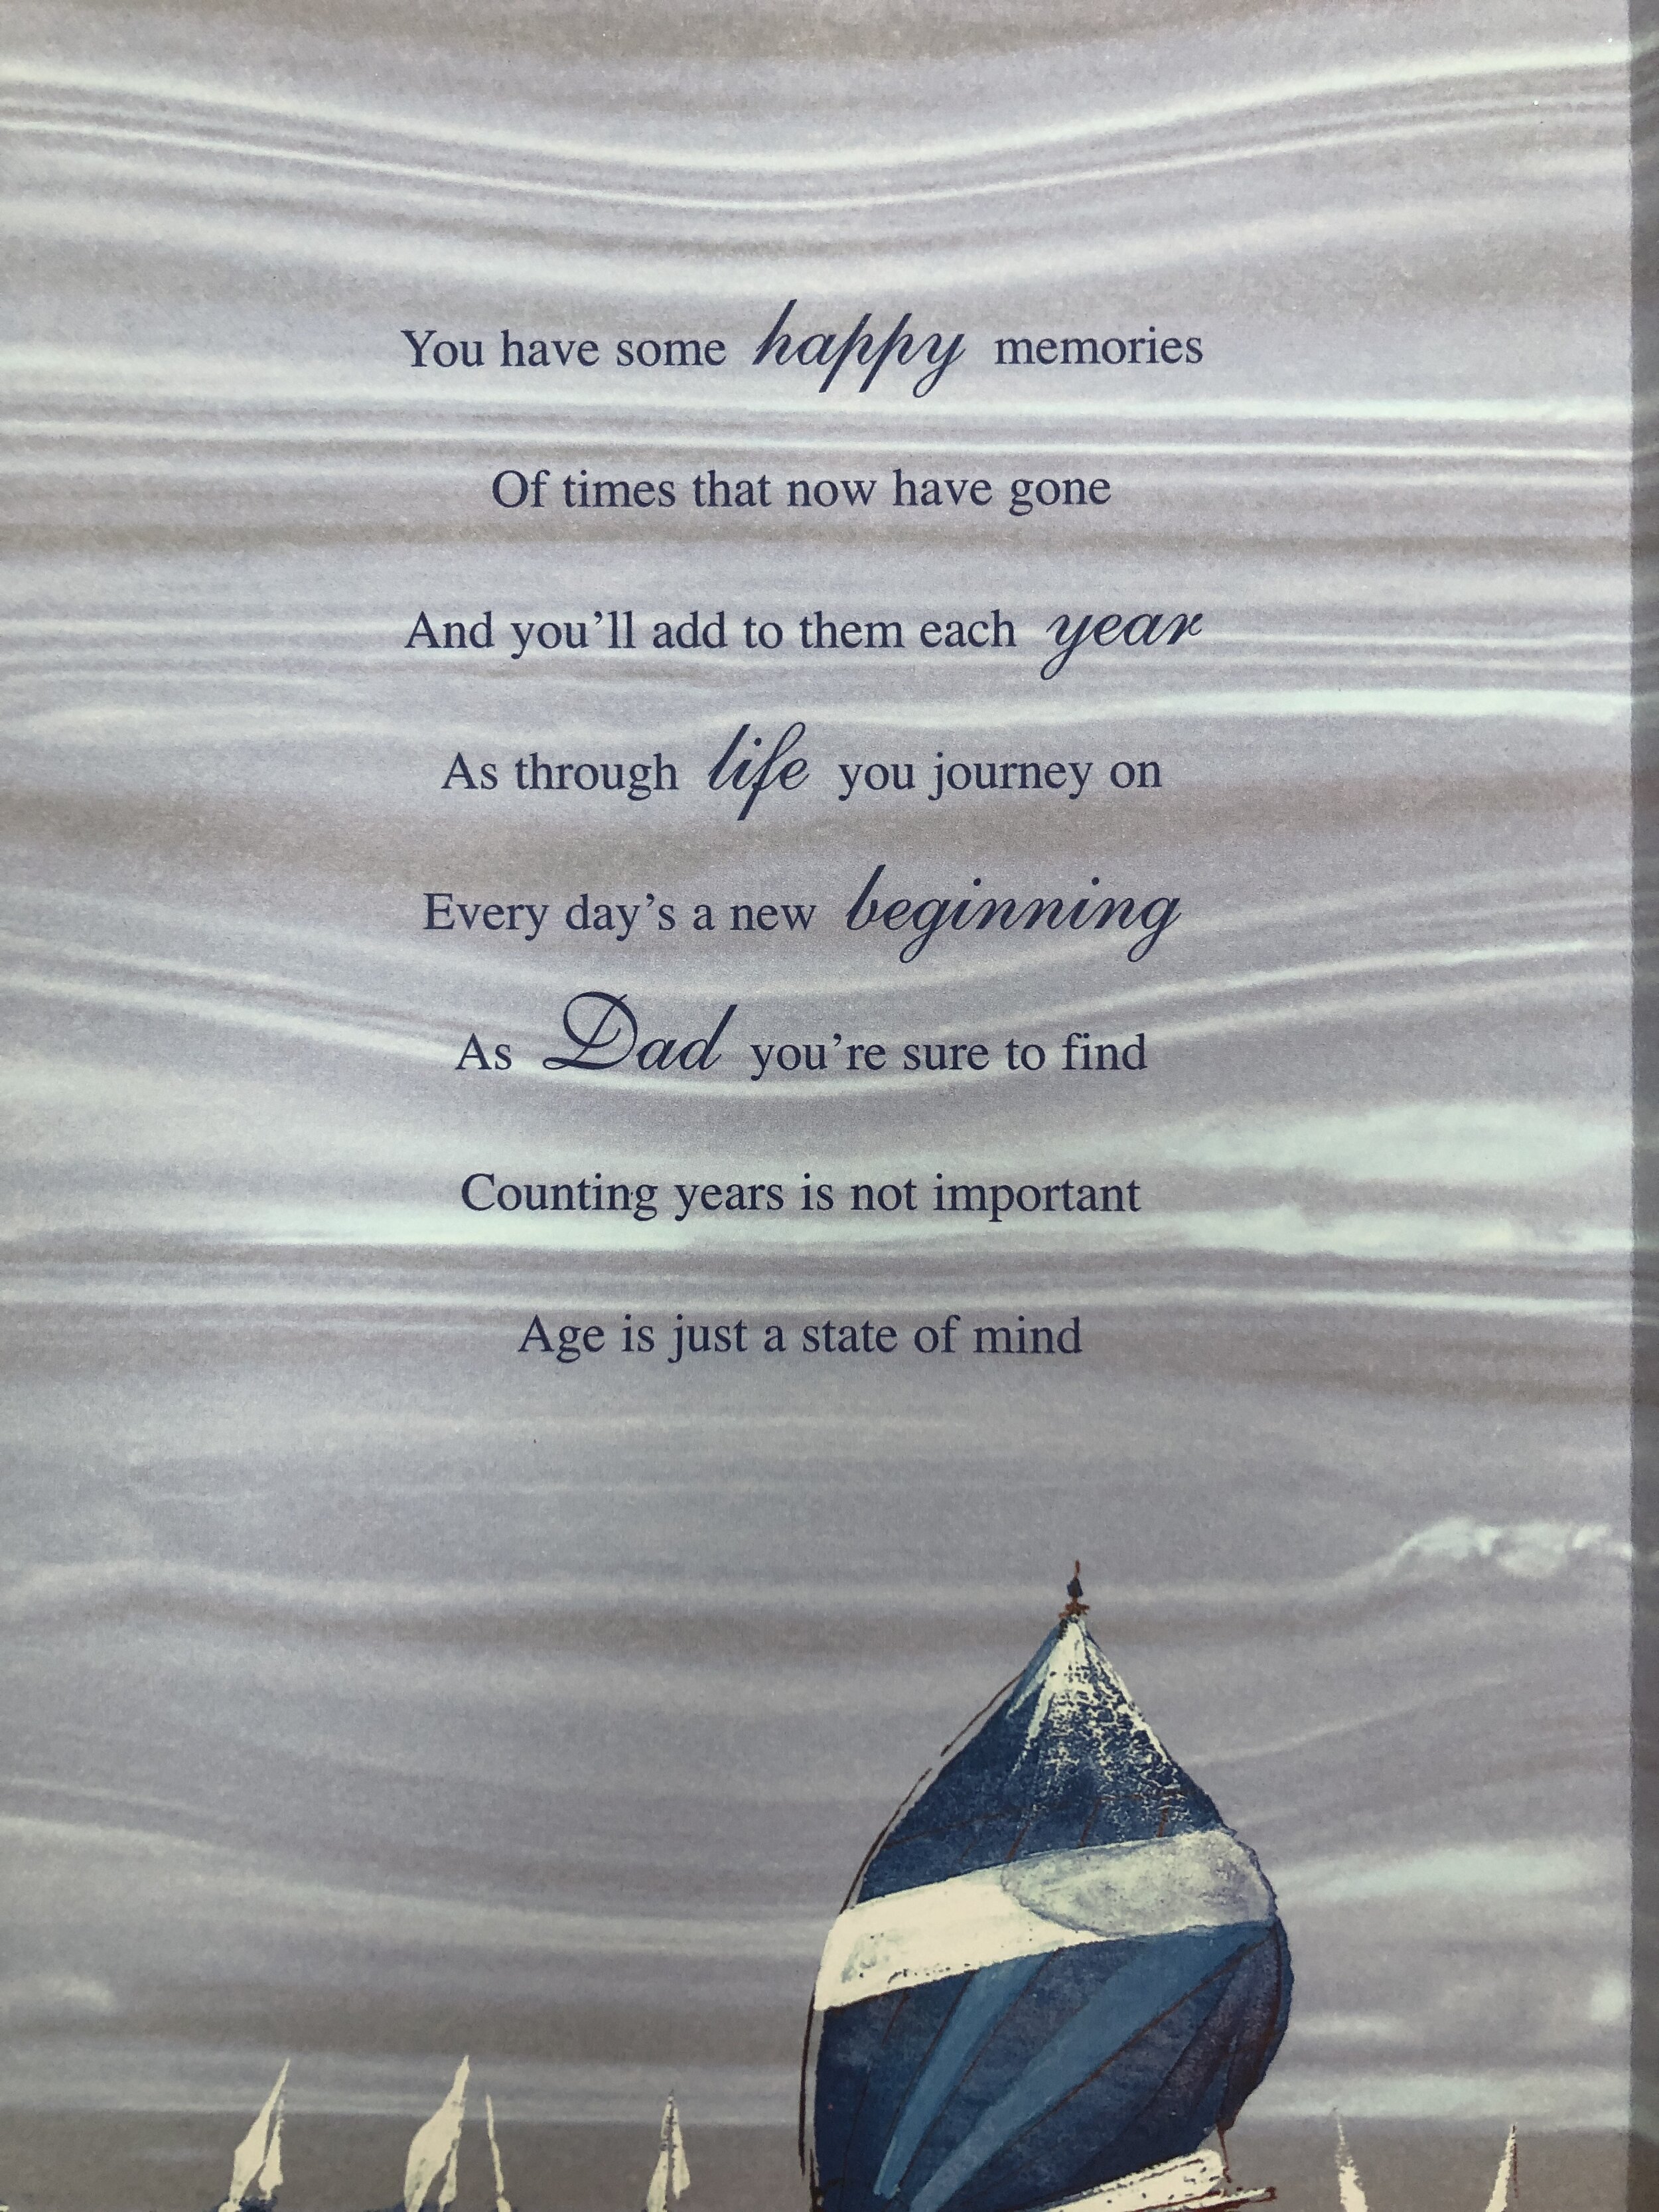 You have some happy memories
Of times that now have gone
And you’ll add to them each year
As through life you journey on
Every day’s a new beginning
As Dad you’re sure to find
Counting years is not important
Age is just a state of mind